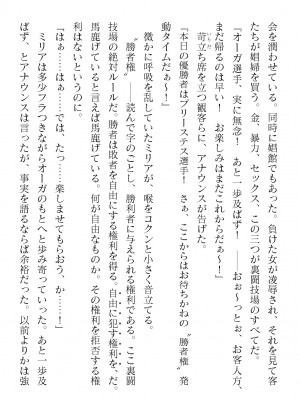 会を潤わせている。同時に娼館でもあった。負けた女が凌辱され、それを見て客
たちが娼婦を買う。金、暴力、セックス、この三つが裏闘技場のすべてだ。
「オーガ選手、実に無念！　あと一歩及ばず！　おぉ～っとぉ、お客人方、
まだ帰るのは早い！　お楽しみはまだこれからだぁ～！」
苛立ち席を立つ観客らに、アナウンスが告げた。
「本日の優勝者はプリーステス選手！　さぁ、ここからはお待ちかねの〝勝者権〟発
動タイムだぁ～！」
微かに呼吸を乱していたミリアが、喉をコクンと小さく音立てる。
〝勝者権〟――読んで字のごとし、勝利者に与えられる権利である。ここ裏闘
技場の絶対ルールだ。勝者は敗者を自由にする権利を得る。自由に犯す権利を、だ。
馬鹿げていると言えば馬鹿げている。何が自由なものか。その権利を拒否する権
利はないというのに。
「はぁ……はぁ……では、たっ……楽しませてもらおう、か……！」
ミリアは多少フラつきながらオーガのもとへと歩み寄っていった。あと一歩及
ばず、とアナウンスは言ったが、事実を語るならば余裕だった。以前よりかは強